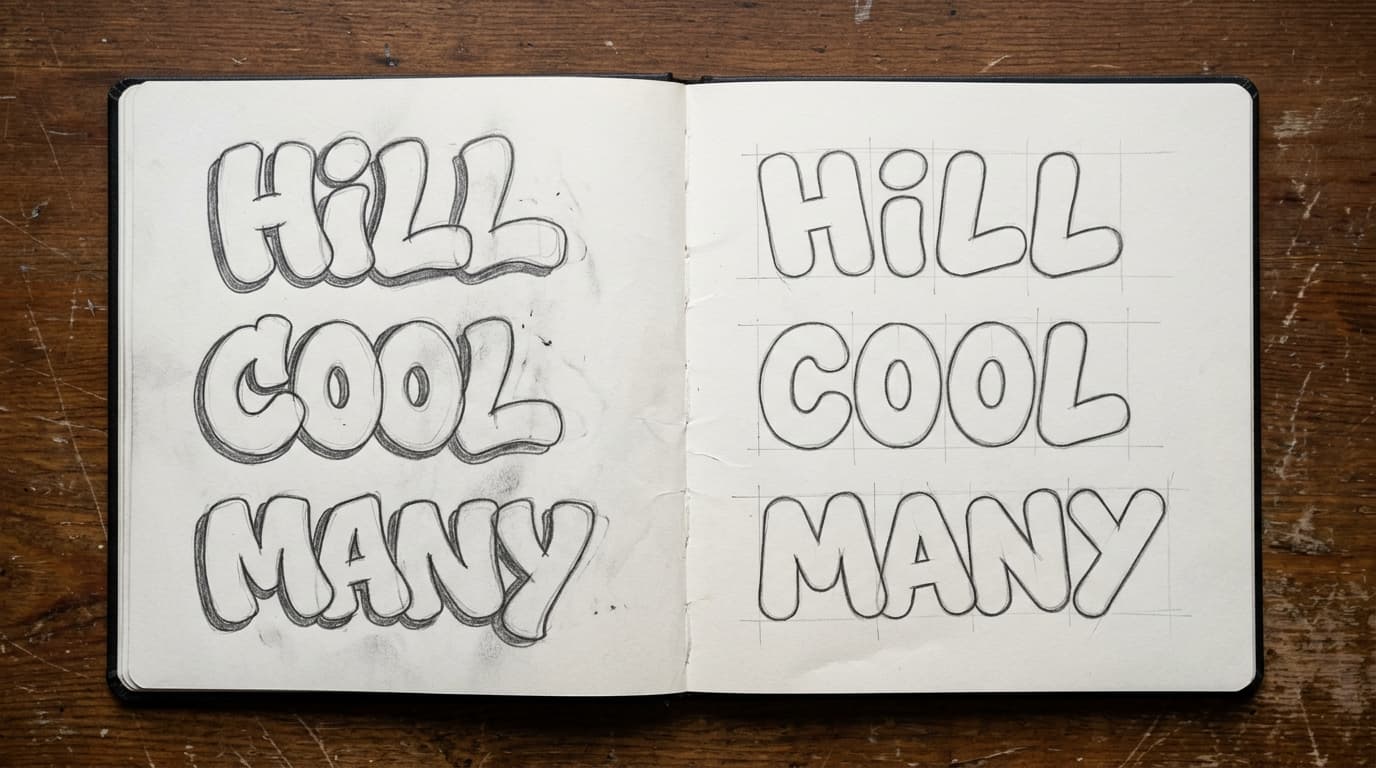 HiLL
COOL
MANY
HiLL
COOL
MANY